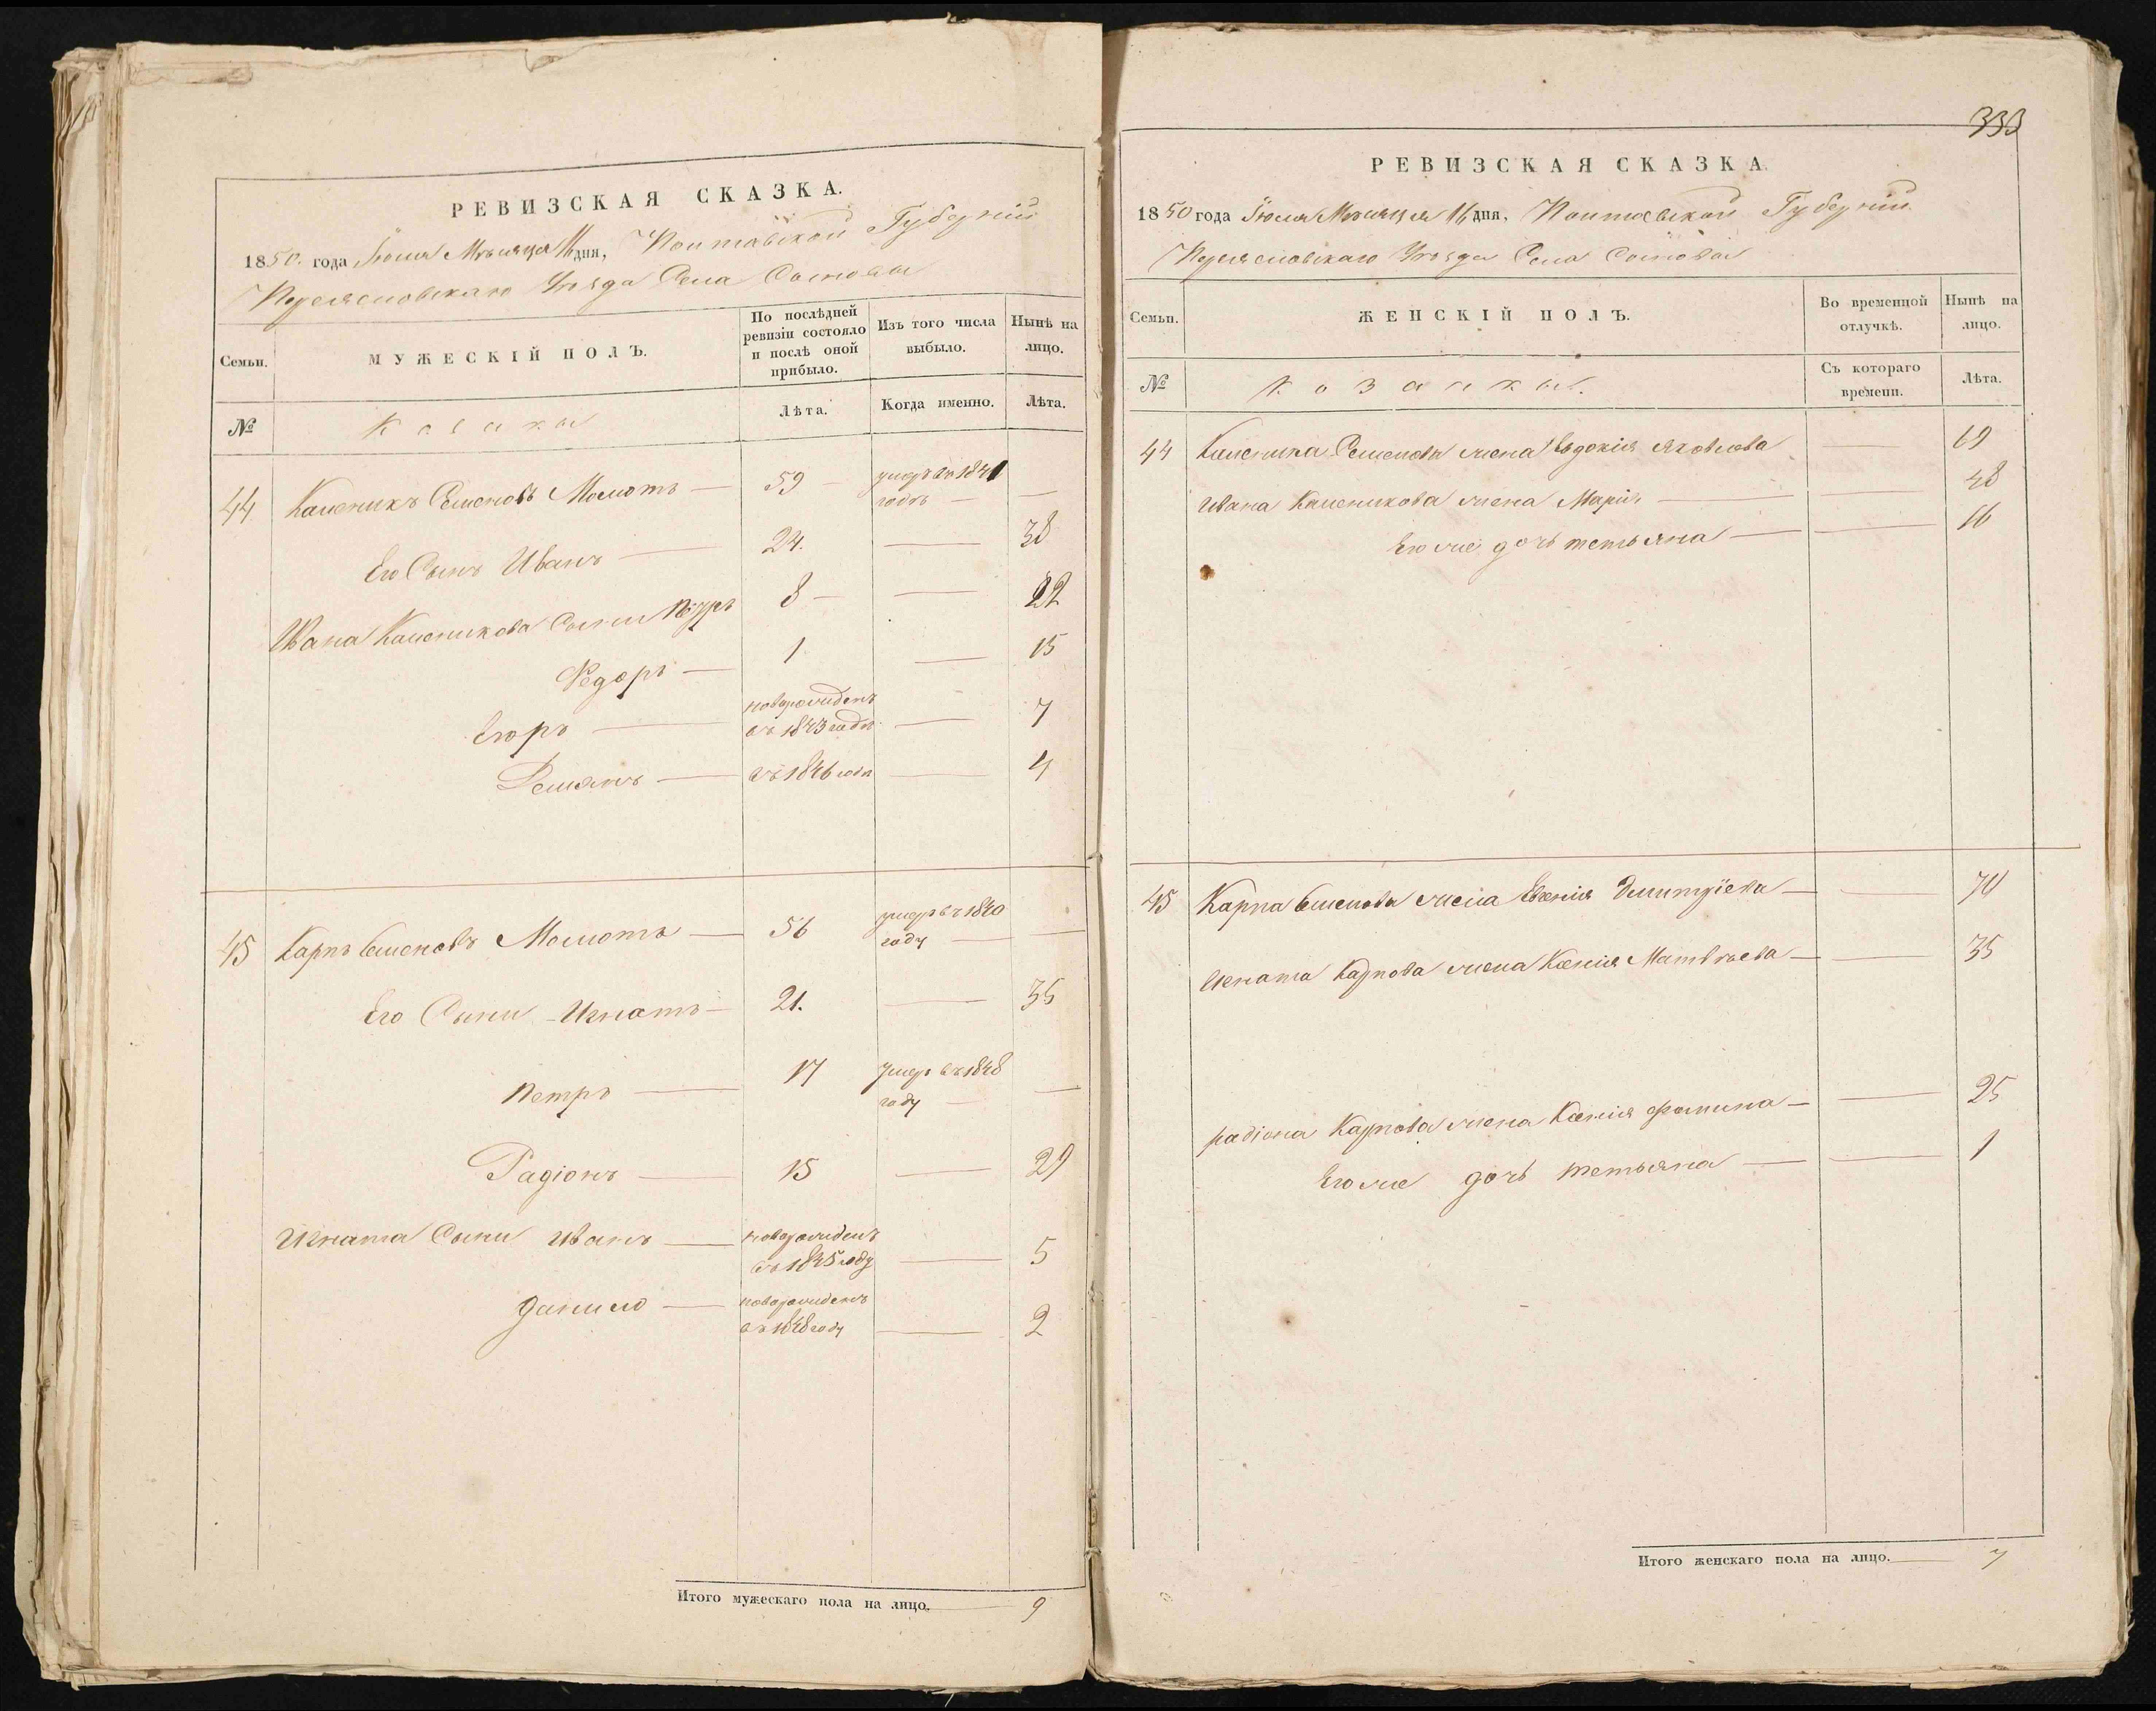 РЕВИЗСКАЯ СКАЗКА.
1850. года Іюля Мѣсяца 16 дня, Полтавской Губерніи
Переясловскаго Уѣзда Села Сомковы
Семьи.
МУЖЕСКІЙ ПОЛЪ.
По послѣдней ревизіи состояло и послѣ оной прибыло.
Изъ того числа выбыло.
Нынѣ на лицо.
№
Козаки
Лѣта.
Когда именно.
Лѣта.
44 Каленикъ Семеновъ Момотъ — 59 — умеръ въ 1841 годѣ —
Его Сынъ Иванъ — 24. — 38
Ивана Каленикова Сыни Петръ 8 — — 22
Федоръ — 1 — 15
Егоръ — новорожденъ въ 1843 годѣ — 7
Демянъ — въ 1846 годѣ — 4
45 Карпъ Семеновъ Момотъ — 56 умеръ въ 1840 году — —
Его Сыни Игнатъ — 21. — 35
Петръ — 17 умеръ въ 1848 году — —
Радіонъ — 15 — 29
Игната Сыни Иванъ — новорожденъ въ 1845 году — 5
Данило — новорожденъ въ 1848 году — 2
Итого мужескаго пола на лицо. — 9
333
РЕВИЗСКАЯ СКАЗКА.
1850 года Іюля Мѣсяца 16 дня, Полтавской Губерніи
Переясловскаго Уѣзда Села Сомковы
Семьи.
ЖЕНСКІЙ ПОЛЪ.
Во временной отлучкѣ.
Нынѣ на лицо.
№
Козачки.
Съ котораго времени.
Лѣта.
44 Каленика Семенова жена Евдокія Яковлева — 69
Ивана Каленикова жена Марія — — 48
Его же дочь Тетьяна — — 16
45 Карпа Семенова жена Евгенія Дмитріева — — 70
Игната Карпова жена Ксенія Матвѣева — — 35
Радіона Карпова жена Ксенія Фомина — — 25
Его же дочь Тетьяна — — 1
Итого женскаго пола на лицо. — 7